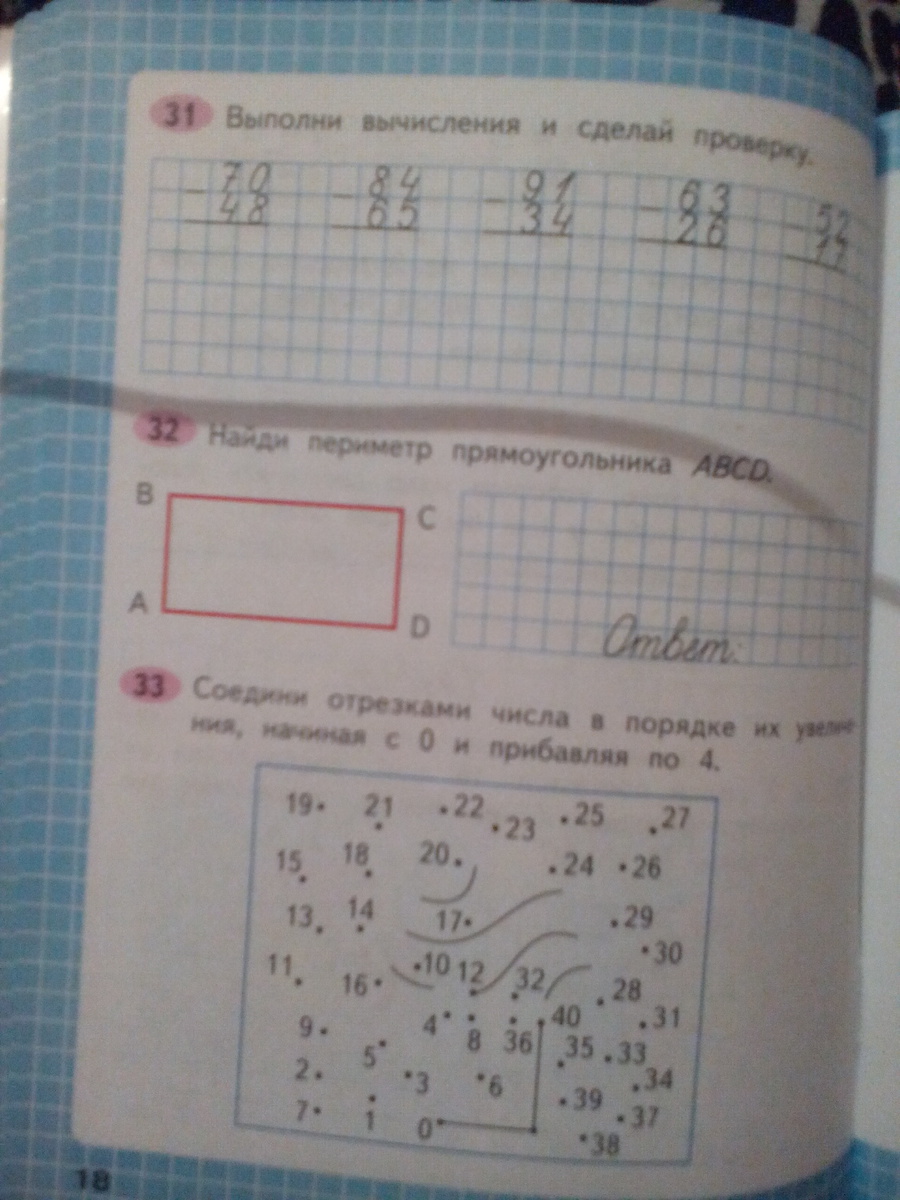 31 Выполни вычисления и сделай проверку.
− 70 − 84 − 91 − 63 − 52
48 65 34 26
32 Найди периметр прямоугольника ABCD.
B C
A D
Ответ:
33 Соедини отрезками числа в порядке их увеличе-
ния, начиная с 0 и прибавляя по 4.
19 21 22 23 25 27
15 18 20 24 26
13 14 17 29
30
11 16 10 12 32 28
9 4 8 36 40 31
5 35 33
2 3 6 34
7 1 0 39 37
38
18